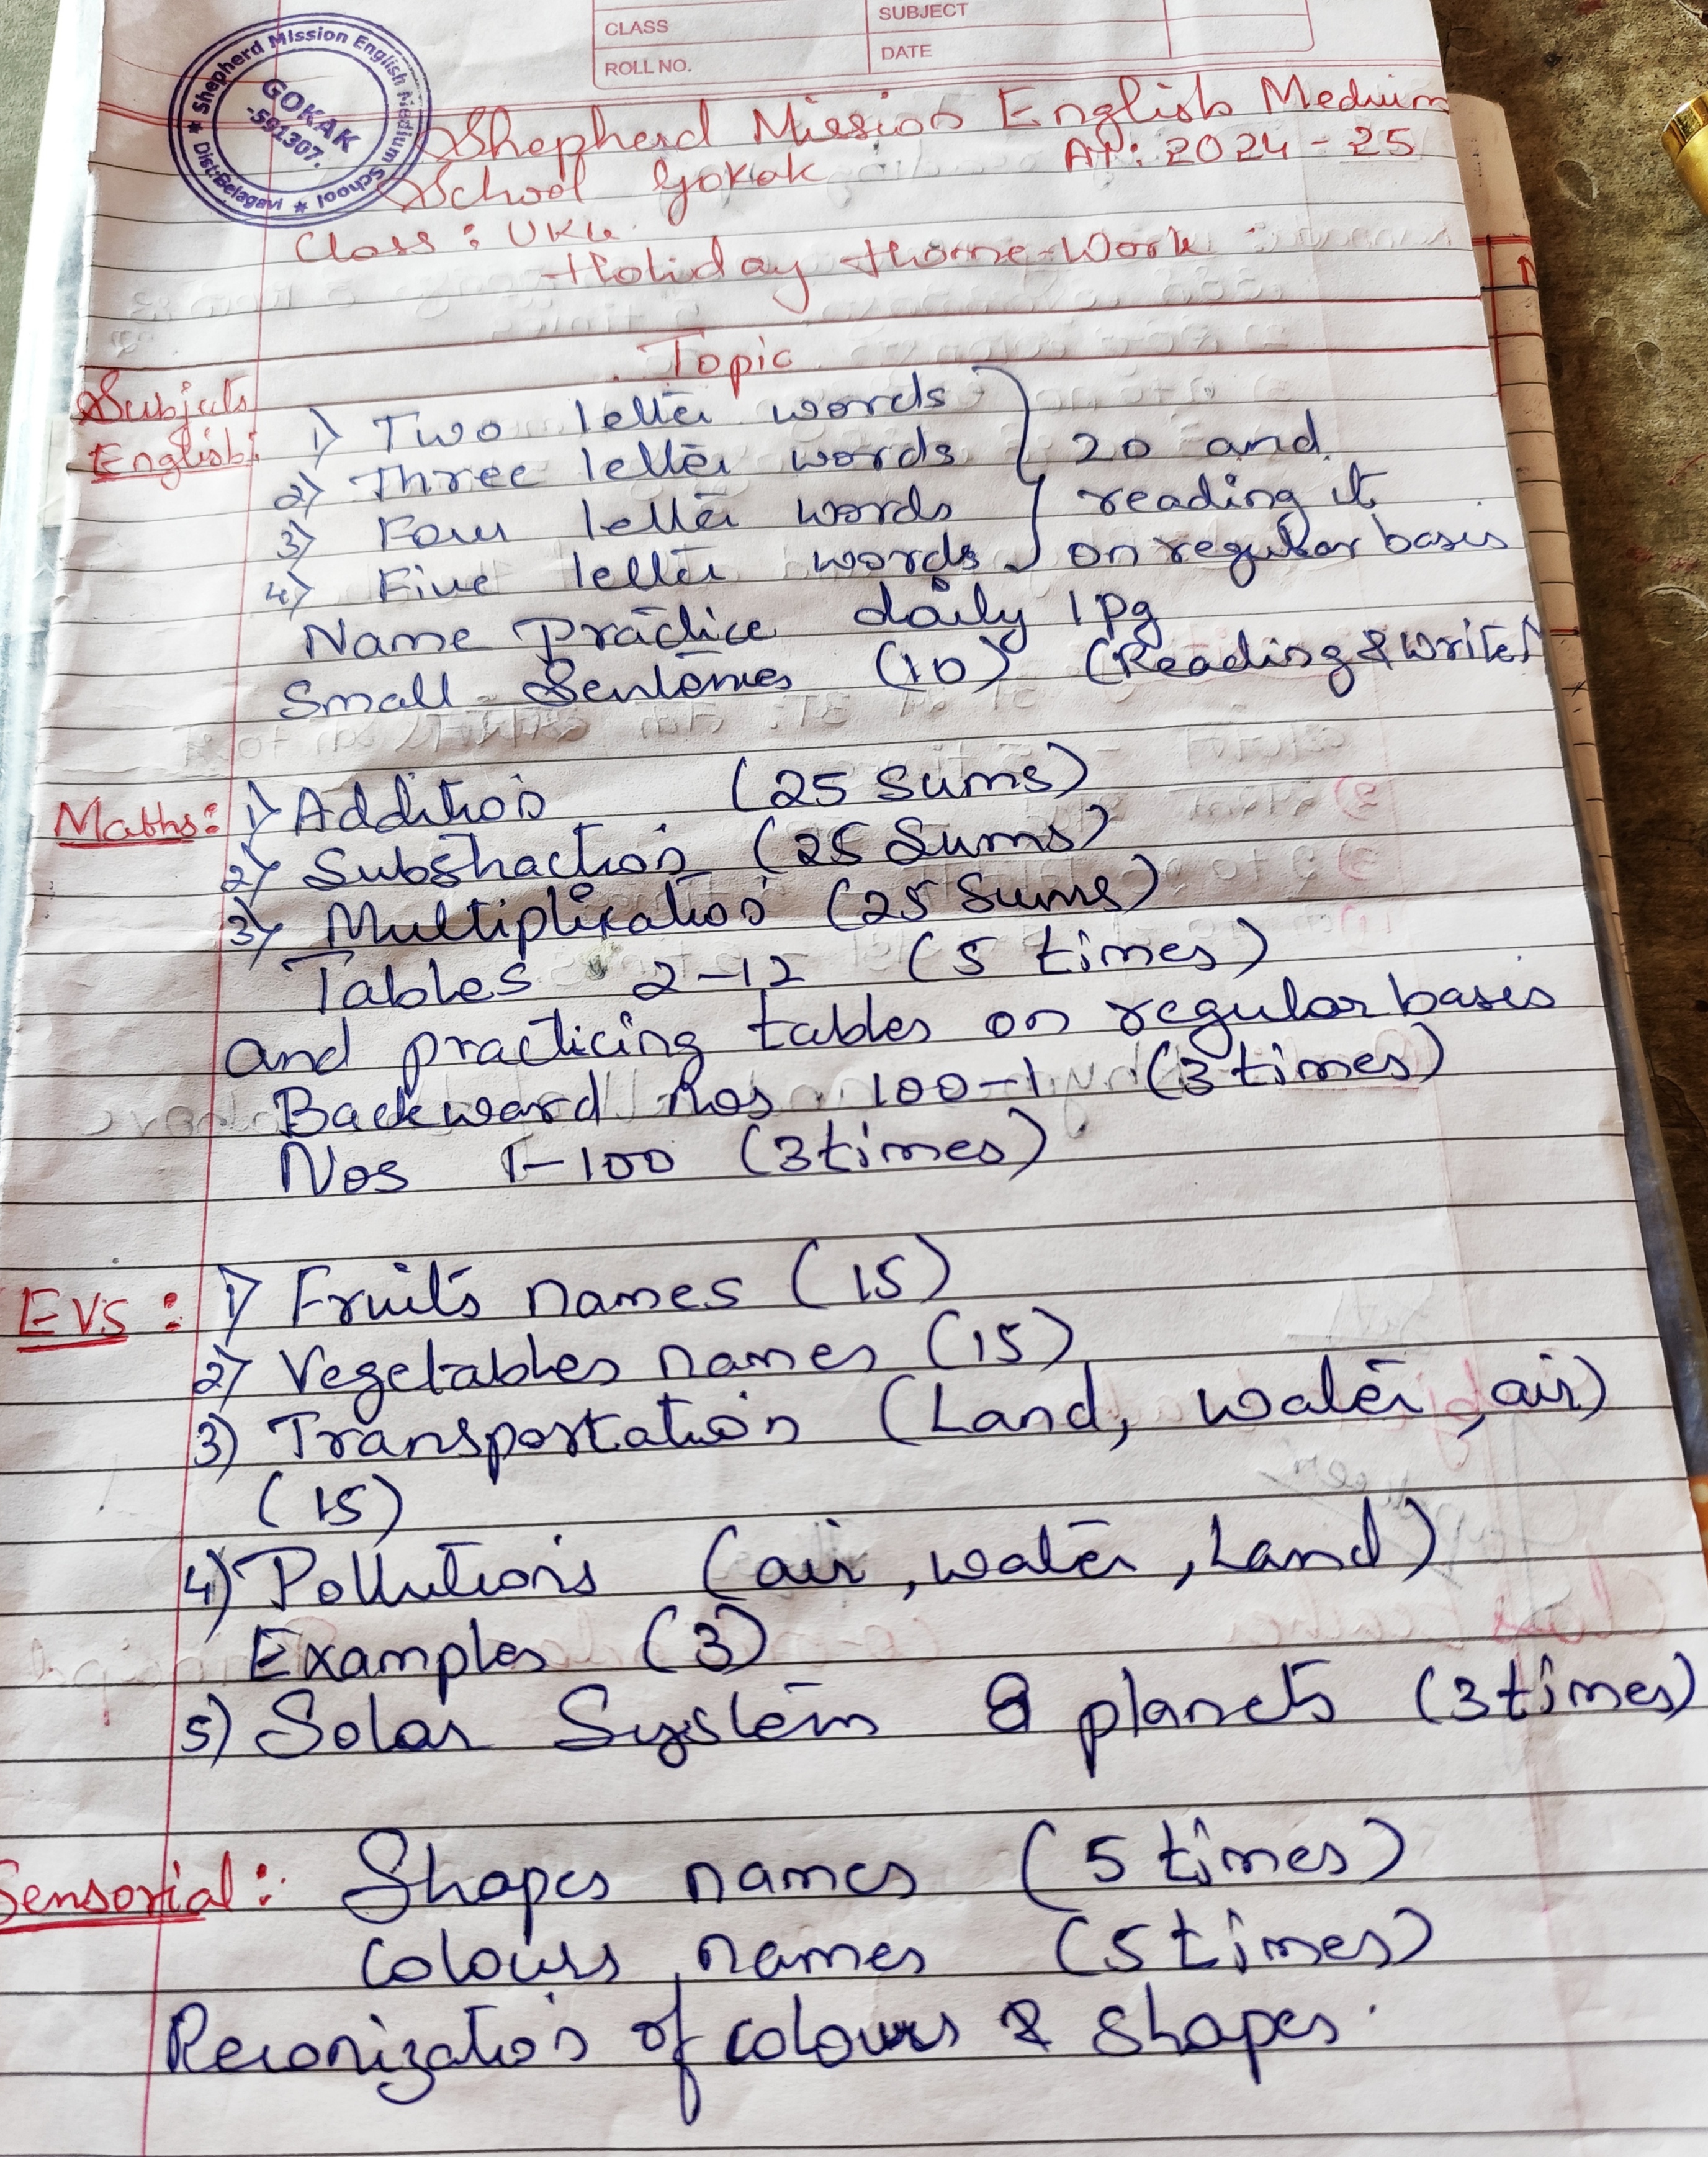 CLASS
SUBJECT
ROLL NO.
DATE
* Shepherd Mission English Medium School * Dist:Belagavi
GOKAK
-591307.
Shepherd Mission English Medium
School Gokak AY: 2024-25
Class: UKG
Holiday Home-Work:
Topic
Subjects
English: 1) Two letter words
2) Three letter words } 20 and
3) Four letter words reading it
4) Five letter words on regular basis
Name practice daily 1 pg
Small Sentences (10) (Reading & write)
Maths: 1) Addition (25 Sums)
2) Substraction (25 Sums)
3) Multiplication (25 Sums)
Tables 2-12 (5 times)
and practicing tables on regular basis
Backward Nos 100-1 (3 times)
Nos 1-100 (3 times)
EVS: 1) Fruits names (15)
2) Vegetables names (15)
3) Transportation (Land, water, air)
(15)
4) Pollutions (air, water, Land)
Examples (3)
5) Solar System 8 planets (3 times)
Sensorial: Shapes names (5 times)
Colours names (5 times)
Reconization of colours & shapes.